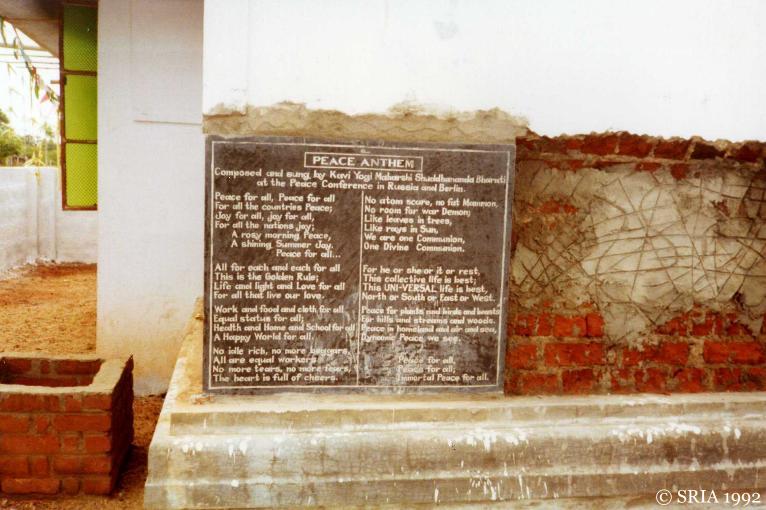 PEACE ANTHEM
Composed and sung by Kavi Yogi Maharshi Shuddhananda Bharati
at the Peace Conference in Russia and Berlin.
Peace for all, Peace for all
For all the countries Peace;
Joy for all, joy for all,
For all the nations joy;
A rosy morning Peace,
A shining Summer Joy.
Peace for all...
All for each and each for all
This is the Golden Rule;
Life and light and Love for all
For all that live our love.
Work and food and cloth for all
Equal status for all;
Health and Home and School for all
A Happy World for all.
No idle rich, no more beggars,
All are equal workers
No more tears, no more fears,
The heart is full of cheers.
No atom scare, no fat Mammon,
No room for war Demon;
Like leaves in trees,
Like rays in Sun,
We are one Communion,
One Divine Communion.
For he or she or it or rest,
This collective life is best;
This UNI-VERSAL life is best,
North or South or East or West.
Peace for plants and birds and beasts
For hills and streams and woods.
Peace in homeland and air and sea,
Dynamic Peace we see.
Peace for all,
Peace for all;
Immortal Peace for all.
© SRIA 1992